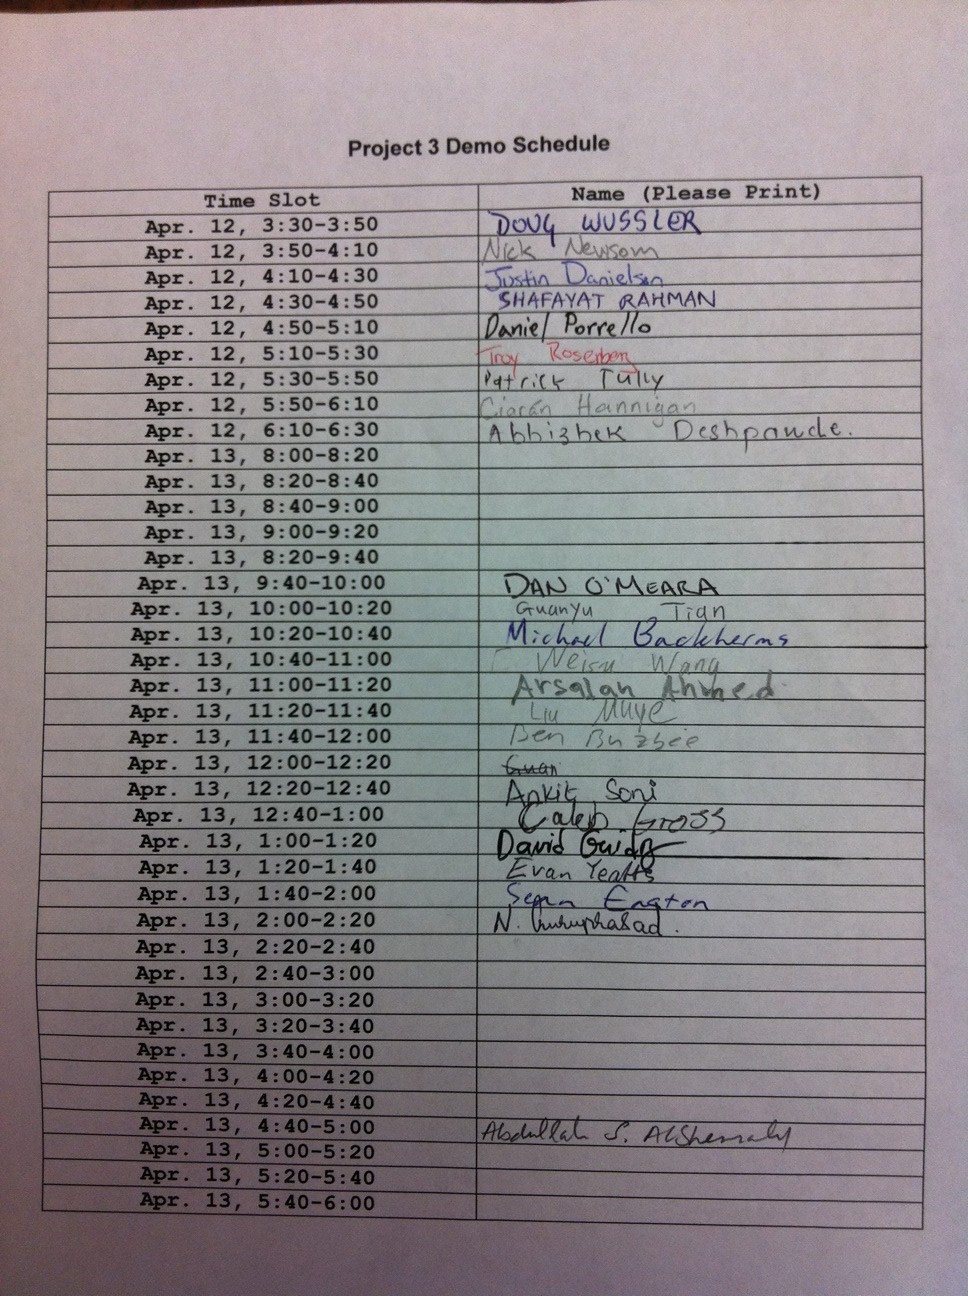 Project 3 Demo Schedule
Time Slot Name (Please Print)
Apr. 12, 3:30-3:50 DOUG WUSSLER
Apr. 12, 3:50-4:10 Nick Newsom
Apr. 12, 4:10-4:30 Justin Danielson
Apr. 12, 4:30-4:50 SHAFAYAT RAHMAN
Apr. 12, 4:50-5:10 Daniel Porrello
Apr. 12, 5:10-5:30 Troy Rosenberg
Apr. 12, 5:30-5:50 Patrick Tully
Apr. 12, 5:50-6:10 Ciarán Hannigan
Apr. 12, 6:10-6:30 Abhishek Deshpande.
Apr. 13, 8:00-8:20
Apr. 13, 8:20-8:40
Apr. 13, 8:40-9:00
Apr. 13, 9:00-9:20
Apr. 13, 8:20-9:40
Apr. 13, 9:40-10:00 DAN O'MEARA
Apr. 13, 10:00-10:20 Guanyu Tian
Apr. 13, 10:20-10:40 Michael Backherms
Apr. 13, 10:40-11:00 Weisu Wang
Apr. 13, 11:00-11:20 Arsalan Ahmed
Apr. 13, 11:20-11:40 Liu Muye
Apr. 13, 11:40-12:00 Ben Buzbee
Apr. 13, 12:00-12:20 Guan
Apr. 13, 12:20-12:40 Ankit Soni
Apr. 13, 12:40-1:00 Caleb Gross
Apr. 13, 1:00-1:20 David
Apr. 13, 1:20-1:40 Evan Yeatts
Apr. 13, 1:40-2:00 Sean Eagton
Apr. 13, 2:00-2:20 N. Guruprasad.
Apr. 13, 2:20-2:40
Apr. 13, 2:40-3:00
Apr. 13, 3:00-3:20
Apr. 13, 3:20-3:40
Apr. 13, 3:40-4:00
Apr. 13, 4:00-4:20
Apr. 13, 4:20-4:40
Apr. 13, 4:40-5:00 Abdullah S.
Apr. 13, 5:00-5:20
Apr. 13, 5:20-5:40
Apr. 13, 5:40-6:00